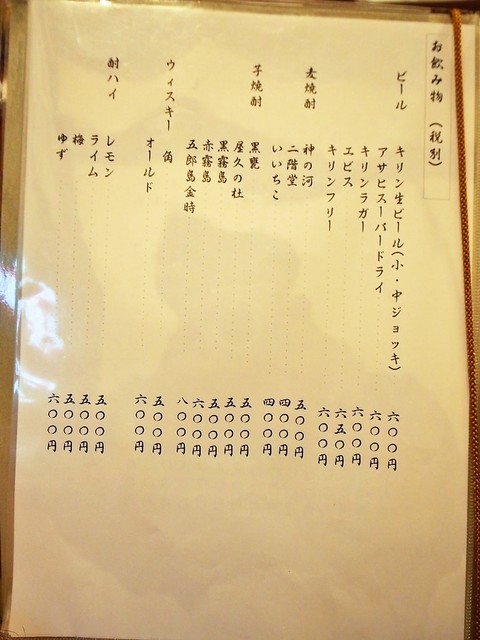 お飲み物（税別）
ビール
キリン生ビール(小・中ジョッキ) 六〇〇円
アサヒスーパードライ 六〇〇円
キリンラガー 六〇〇円
エビス 六五〇円
キリンフリー 六〇〇円
麦焼酎
神の河 五〇〇円
二階堂 四〇〇円
いいちこ 四〇〇円
芋焼酎
黒甕 五〇〇円
屋久の杜 五〇〇円
黒霧島 五〇〇円
赤霧島 六〇〇円
五郎島金時 八〇〇円
ウィスキー
角 五〇〇円
オールド 六〇〇円
酎ハイ
レモン 五〇〇円
ライム 五〇〇円
梅 五〇〇円
ゆず 六〇〇円